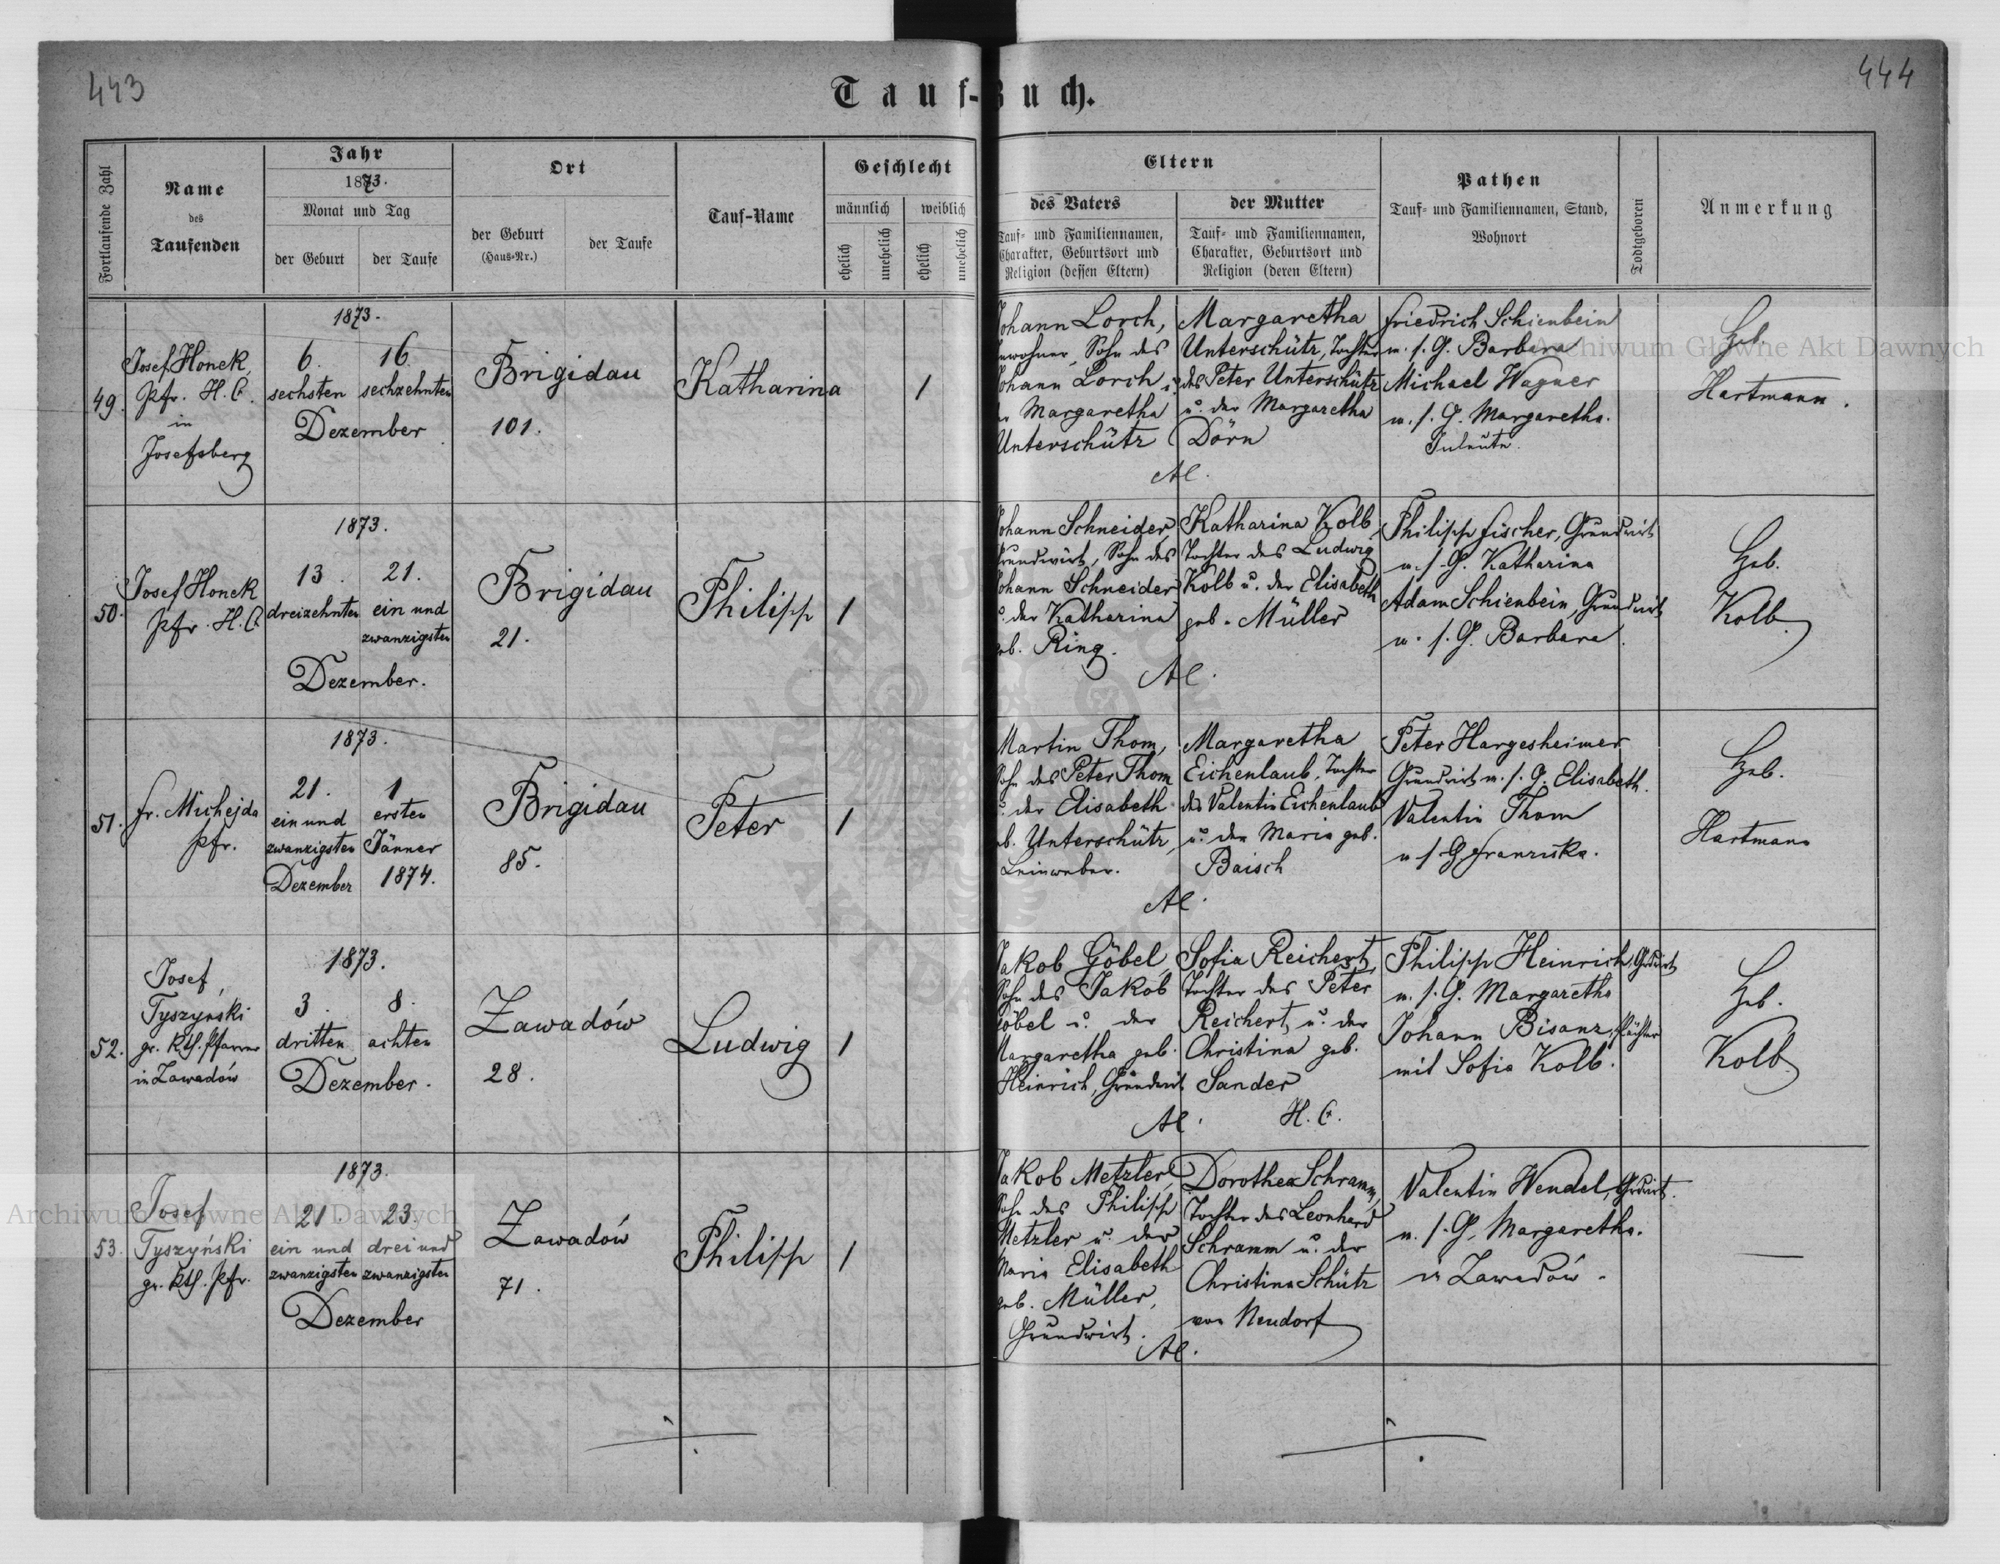 443
444
Tauf-Buch.
Fortlaufende Zahl
Name
des
Taufenden
Jahr
1873.
Monat und Tag
der Geburt
der Taufe
Ort
der Geburt
(Haus-Nr.)
der Taufe
Tauf-Name
Geschlecht
männlich
weiblich
ehelich
unehelich
ehelich
unehelich
Eltern
des Vaters
Tauf- und Familiennamen,
Charakter, Geburtsort und
Religion (dessen Eltern)
der Mutter
Tauf- und Familiennamen,
Charakter, Geburtsort und
Religion (deren Eltern)
Pathen
Tauf- und Familiennamen, Stand,
Wohnort
Todtgeboren
Anmerkung
49.
Josef Honek,
Pfr. H. C.
in
Josefsberg
1873.
6.
sechsten
16.
sechzehnten
Dezember
Brigidau
101.
Katharina
1
Johann Lorch,
Inwohner, Sohn des
Johann Lorch u.
der Margaretha
Unterschütz
Margaretha
Unterschütz, Tochter
des Peter Unterschütz
u. der Margaretha
Dörn
AC.
Friedrich Schienbein
u. s. G. Barbara
Michael Wagner
u. s. G. Margaretha.
Inleute.
Heb.
Hartmann.
50.
Josef Honek
Pfr. H. C.
1873.
13.
dreizehnten
21.
ein und
zwanzigsten
Dezember.
Brigidau
21.
Philipp
1
Johann Schneider,
Grundwirt, Sohn des
Johann Schneider
u. der Katharina
geb. Ring.
Katharina Kolb,
Tochter des Ludwig
Kolb u. der Elisabeth
geb. Müller
AC.
Philipp Fischer, Grundwirt
u. s. G. Katharina
Adam Schienbein, Grundwirt
u. s. G. Barbara.
Heb.
Kolb
51.
Fr. Michejda
Pfr.
1873.
21.
ein und
zwanzigsten
Dezember
1
ersten
Jänner
1874.
Brigidau
85.
Peter
1
Martin Thom,
Sohn des Peter Thom
u. der Elisabeth
geb. Unterschütz,
Leinweber.
Margaretha
Eichenlaub, Tochter
des Valentin Eichenlaub
u. der Maria geb.
Baisch
AC.
Peter Hargesheimer
Grundwirt u. s. G. Elisabeth.
Valentin Thom
u s G Franziska.
Heb.
Hartmann
52.
Josef
Tyszyński
gr. kth. Pfarrer
in Zawadów
1873.
3.
dritten
8.
achten
Dezember.
Zawadów
28.
Ludwig
1
Jakob Göbel,
Sohn des Jakob
Göbel u. der
Margaretha geb.
Heinrich, Grundwirt
Sofia Reichert,
Tochter des Peter
Reichert u. der
Christina geb.
Sander
AC.
H. C.
Philipp Heinrich, Grdwirt
u. s. G. Margaretha
Johann Bisanz, Pächter
mit Sofia Kolb.
Heb.
Kolb
53.
Josef
Tyszyński
gr. kth. Pfr.
1873.
21.
ein und
zwanzigsten
23.
drei und
zwanzigsten
Dezember
Zawadów
71.
Philipp
1
Jakob Metzler,
Sohn des Philipp
Metzler u. der
Maria Elisabeth
geb. Müller,
Grundwirt.
Dorothea Schramm,
Tochter des Leonhard
Schramm u. der
Christina Schütz
von Neudorf
AC.
Valentin Wendel, Grdwirt.
u. s. G. Margaretha.
in Zawadów.
Archiwum Główne Akt Dawnych
Archiwum Główne Akt Dawnych